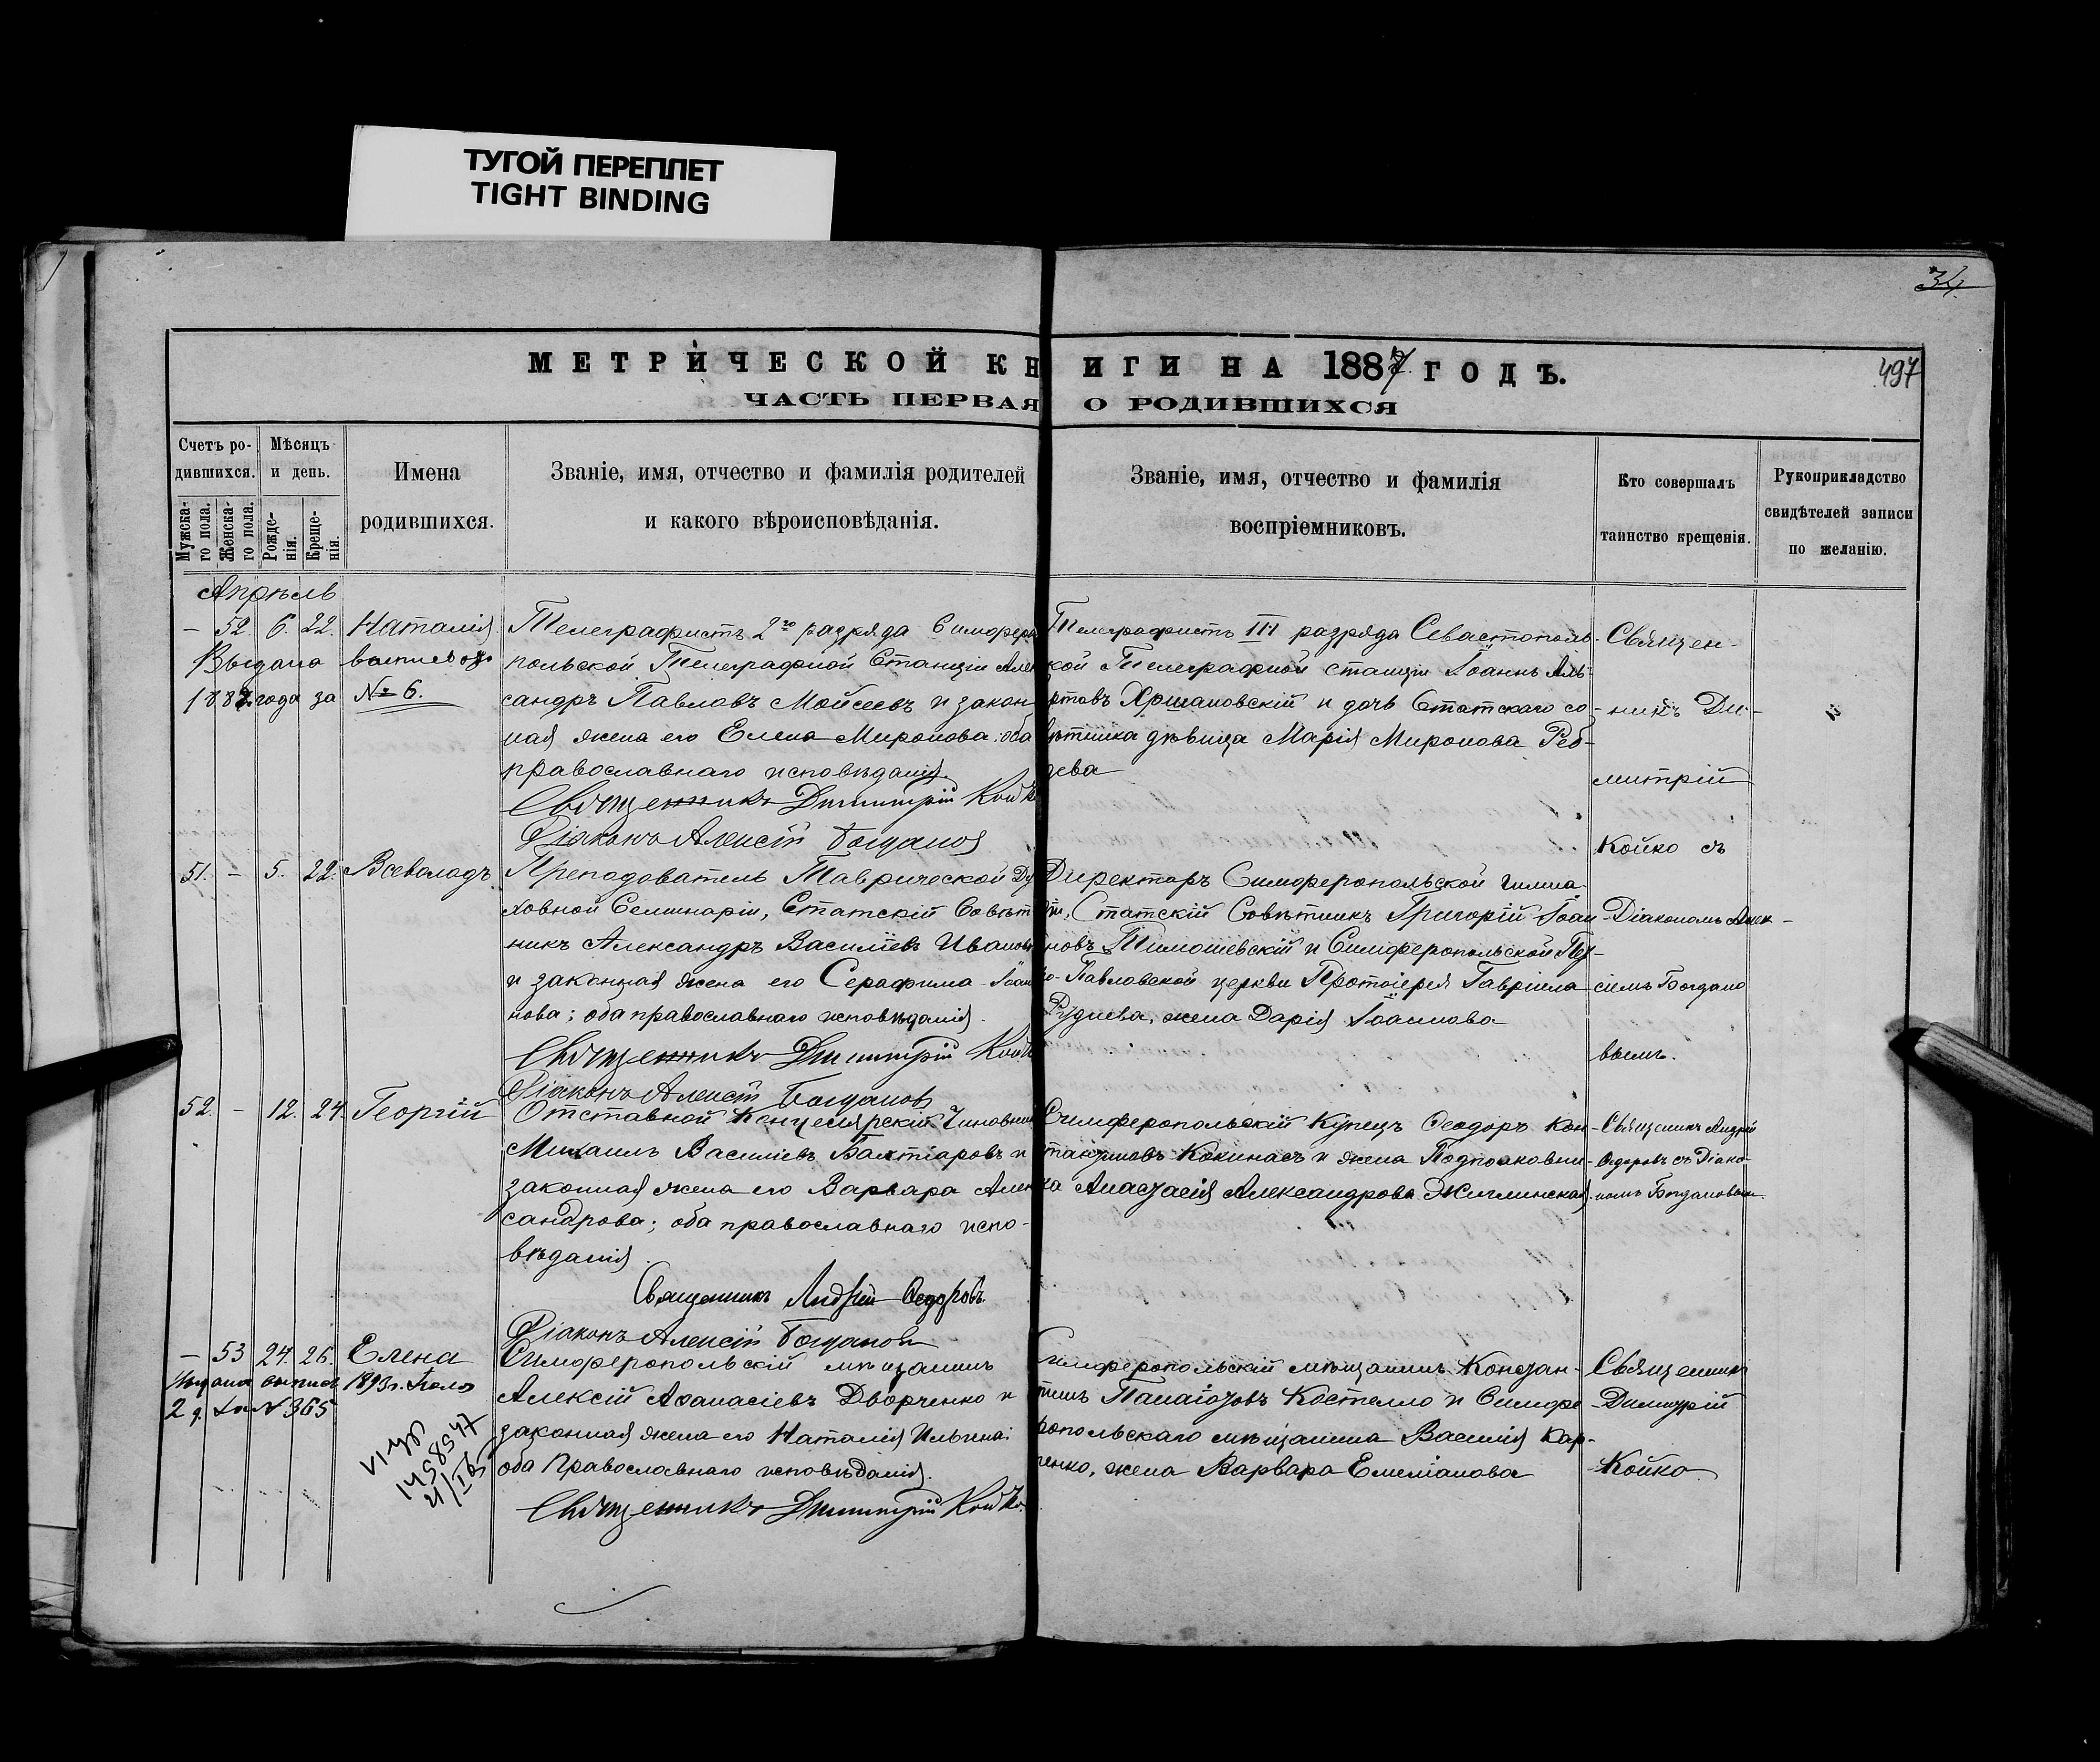 ТУГОЙ ПЕРЕПЛЕТ
TIGHT BINDING
34.
МЕТРИЧЕСКОЙ КНИГИ НА 1887 ГОДЪ.
497
ЧАСТЬ ПЕРВАЯ О РОДИВШИХСЯ
Счетъ ро-
дившихся.
Мужска-
го пола.
Женска-
го пола.
Мѣсяцъ
и день.
Рожде-
нія.
Креще-
нія.
Имена
родившихся.
Званіе, имя, отчество и фамилія родителей
и какого вѣроисповѣданія.
Званіе, имя, отчество и фамилія
воспріемниковъ.
Кто совершалъ
таинство крещенія.
Рукоприкладство
свидѣтелей записи
по желанію.
Апрѣль
– 52. 6. 22. Наталія
Выдана
1887 года за № 6.
Телеграфистъ 2го разряда Симферо
польской Телеграфной Станціи Алек
сандръ Павловъ Мойсеевъ и закон
ная жена его Елена Миронова; оба
православнаго исповѣданія.
Священникъ Димитрій Койко
Діаконъ Алексій Богданов
Телеграфистъ III разряда Севастополь-
кой Телеграфной станціи Іоаннъ Аль-
ртовъ Хршановскій и дочь Статскаго со-
вѣтника дѣвица Марія Миронова
Священ-
никъ Ди-
митрій
Койко съ
Діакономъ Алек-
сіемъ Богдано
вымъ.
51. – 5. 22. Всеволодъ
Преподователь Таврической Ду
ховной Семинаріи, Статскій Совѣт
никъ Александръ Василіевъ Иванов
и законная жена его Серафима Іоан
нова; оба православнаго исповѣданія.
Священникъ Димитрій Койко
Діаконъ Алексій Богданов
Директоръ Симферопольской гимна-
зіи, Статскій Совѣтникъ Григорій Іоан-
новъ Тимошевскій и Симферопольской Пет-
ро-Павловской церкви Протоіерея Гавріила
Руднева, жена Дарія Іоаннова
52. – 12. 24. Георгій
Отставной Канцелярскій Чиновник
Михаилъ Василіевъ Бахтіаровъ и
законная жена его Варвара Алек
сандрова; оба православнаго испо-
вѣданія.
Священникъ Андрей Ѳедоровъ
Діаконъ Алексій Богданов
Симферопольскій Купецъ Ѳеодоръ Кон-
стантиновъ Кокинасъ и жена Подполковни-
ка Анастасія Александрова Жиглинская
Священникъ Андрей
Ѳедоровъ съ Діако-
номъ Богдановым.
– 53 24. 26. Елена
Выдана выпись 1893 г. Іюля
2 д. за № 365
VI-УБ
1458547
21/I 65
Симферопольскій мѣщанинъ
Алексій Аѳанасіевъ Дворченко и
законная жена его Наталія Ильина;
оба Православнаго исповѣданія.
Священникъ Димитрій Койко.
Симферопольскій мѣщанинъ Констан-
тинъ Панаіотовъ Костелло и Симфе
ропольскаго мѣщанина Василія Кар-
пенко, жена Варвара Емеліанова
Священникъ
Димитрій
Койко.